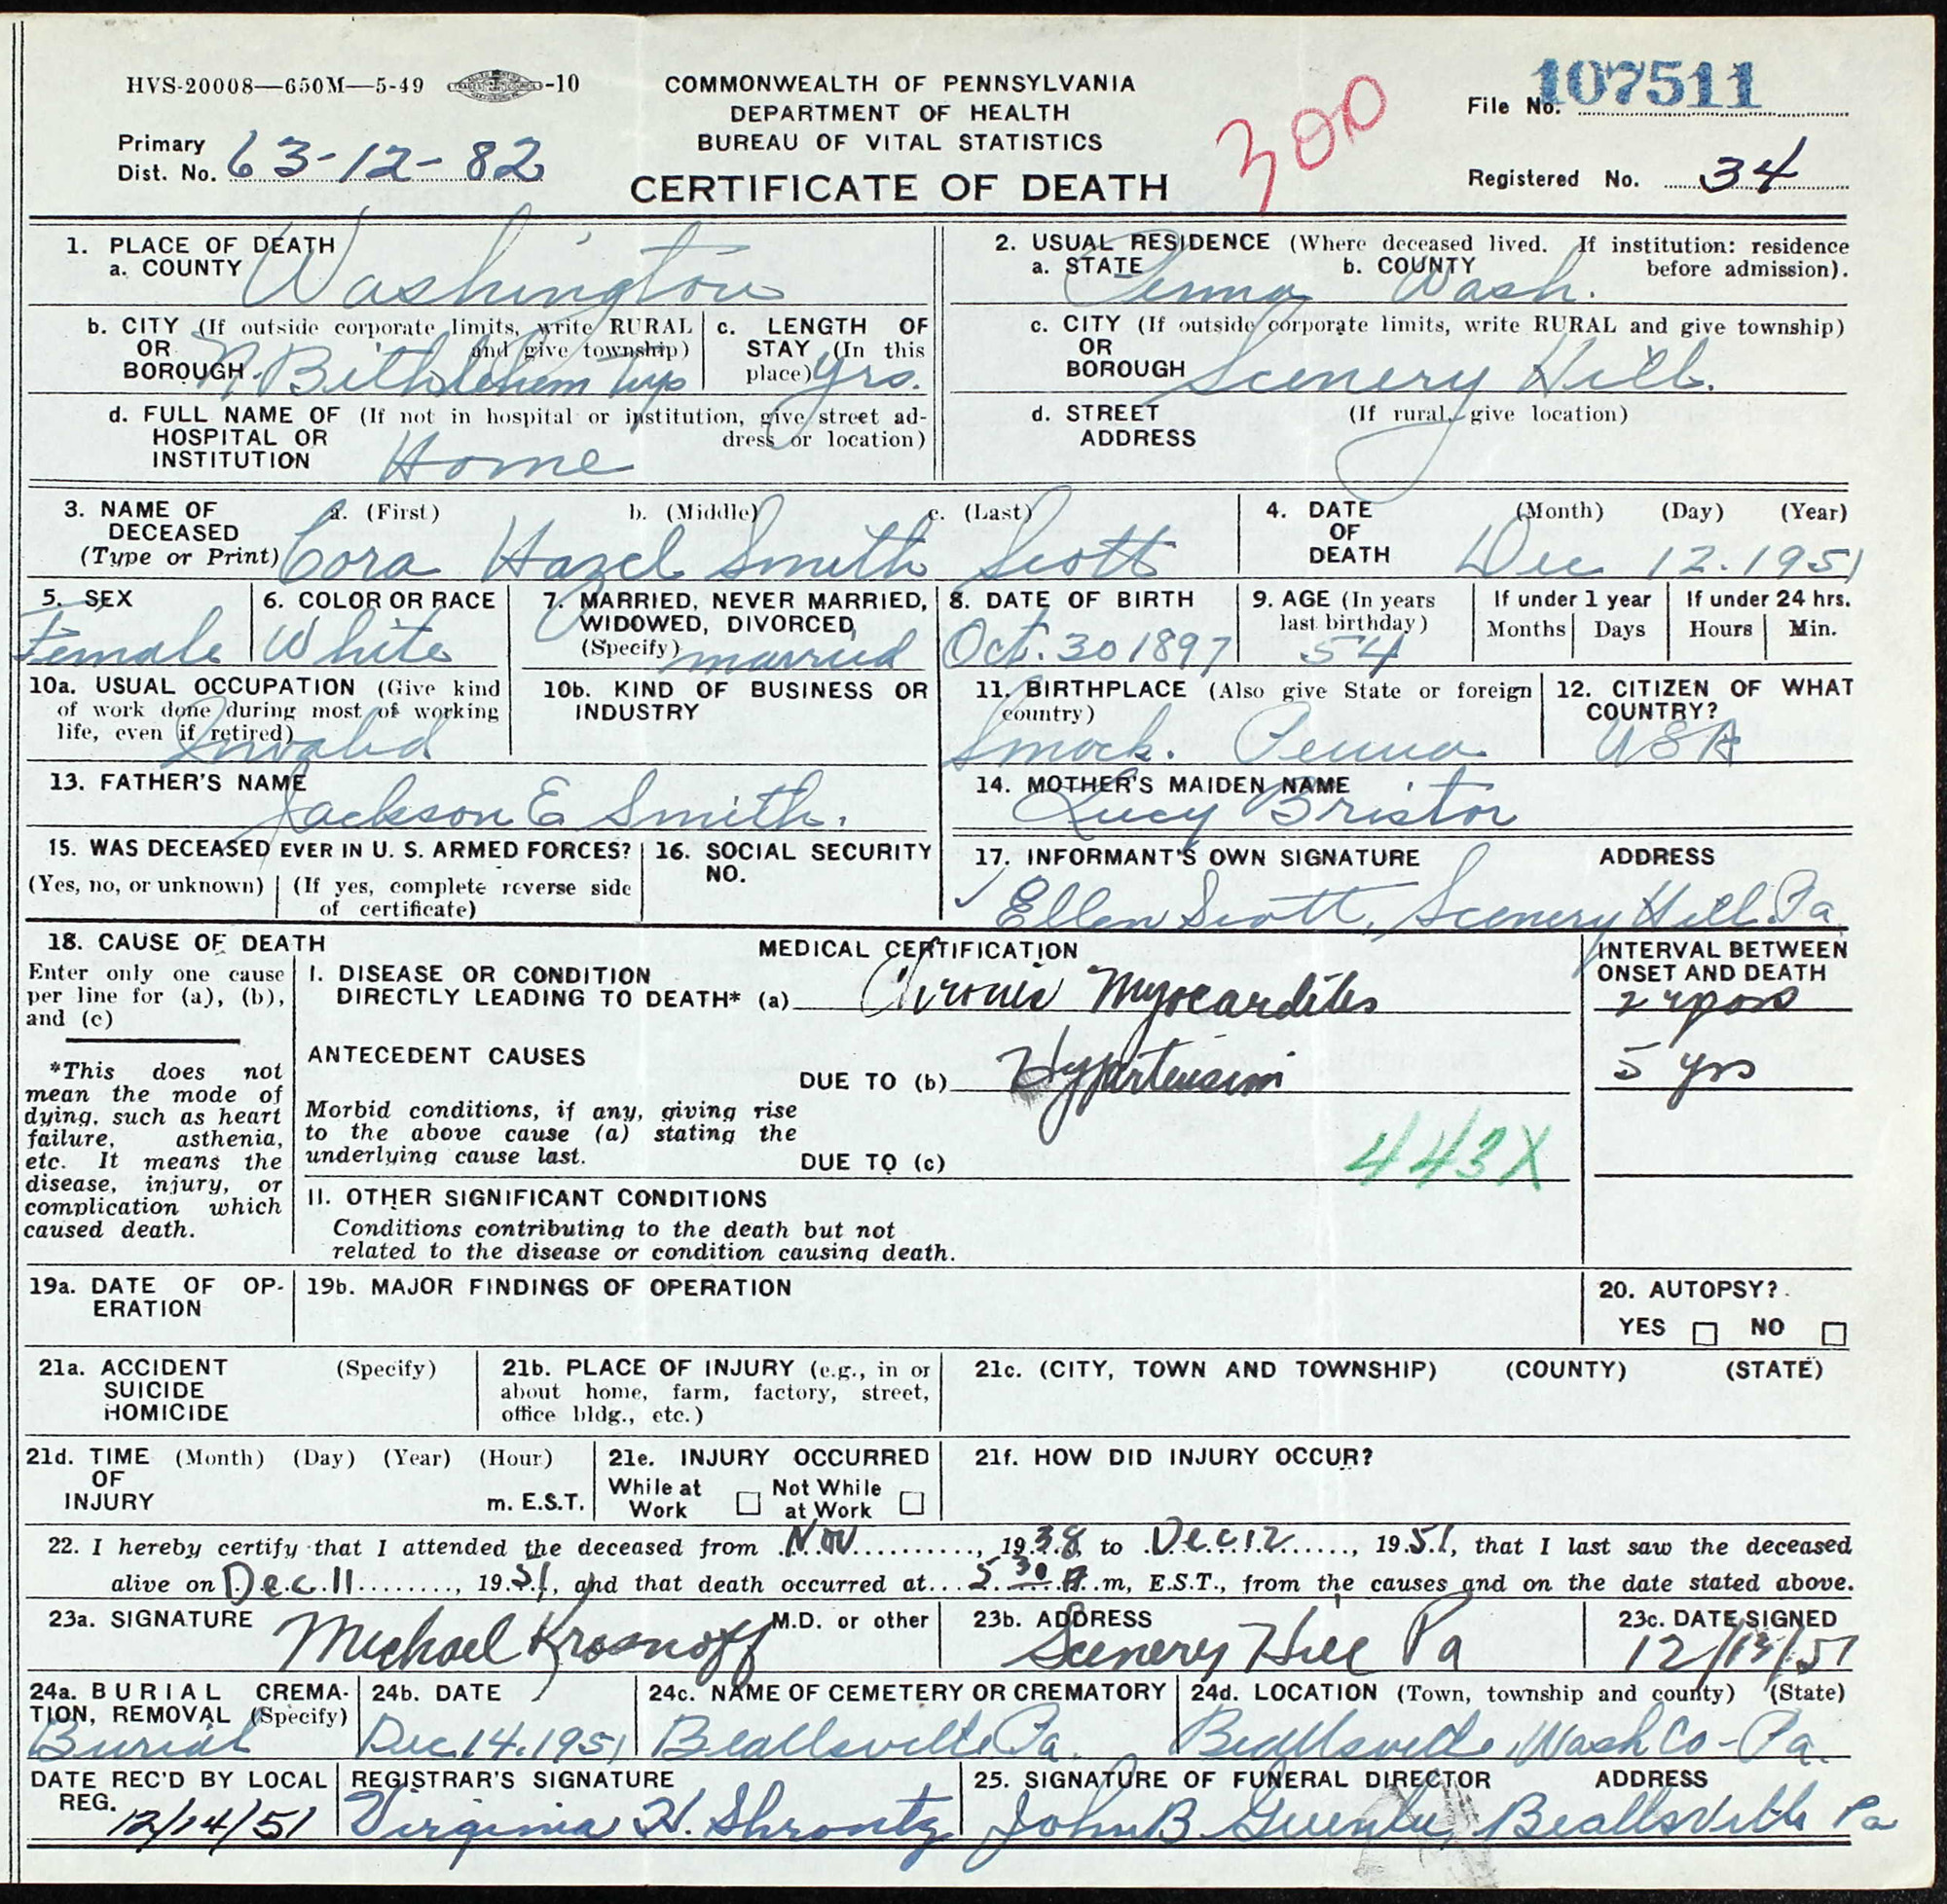 HVS-20008—650M—5-49 -10
COMMONWEALTH OF PENNSYLVANIA
DEPARTMENT OF HEALTH
BUREAU OF VITAL STATISTICS
CERTIFICATE OF DEATH
300
File No. 107511
Primary
Dist. No. 63-12-82
Registered No. 34
1. PLACE OF DEATH
a. COUNTY Washington
2. USUAL RESIDENCE (Where deceased lived. If institution: residence before admission).
a. STATE Penna b. COUNTY Wash.
b. CITY (If outside corporate limits, write RURAL and give township)
OR
BOROUGH N. Bithlehem Twp
c. LENGTH OF STAY (In this place) yrs.
c. CITY (If outside corporate limits, write RURAL and give township)
OR
BOROUGH Scenery Hill.
d. FULL NAME OF (If not in hospital or institution, give street address or location)
HOSPITAL OR
INSTITUTION Home
d. STREET (If rural, give location)
ADDRESS
3. NAME OF DECEASED
(Type or Print)
a. (First) b. (Middle) c. (Last)
Cora Hazel Smith Scott
4. DATE OF DEATH
(Month) (Day) (Year)
Dec 12. 1951
5. SEX
Female
6. COLOR OR RACE
White
7. MARRIED, NEVER MARRIED, WIDOWED, DIVORCED (Specify)
married
8. DATE OF BIRTH
Oct. 30 1897
9. AGE (In years last birthday)
54
If under 1 year
Months Days
If under 24 hrs.
Hours Min.
10a. USUAL OCCUPATION (Give kind of work done during most of working life, even if retired)
Invalid
10b. KIND OF BUSINESS OR INDUSTRY
11. BIRTHPLACE (Also give State or foreign country)
Smock. Penna
12. CITIZEN OF WHAT COUNTRY?
USA
13. FATHER'S NAME
Jackson E Smith.
14. MOTHER'S MAIDEN NAME
Lucy Bristor
15. WAS DECEASED EVER IN U. S. ARMED FORCES?
(Yes, no, or unknown) (If yes, complete reverse side of certificate)
16. SOCIAL SECURITY NO.
17. INFORMANT'S OWN SIGNATURE ADDRESS
Ellen Scott, Scenery Hill Pa.
18. CAUSE OF DEATH
Enter only one cause per line for (a), (b), and (c)
*This does not mean the mode of dying, such as heart failure, asthenia, etc. It means the disease, injury, or complication which caused death.
MEDICAL CERTIFICATION
I. DISEASE OR CONDITION
DIRECTLY LEADING TO DEATH* (a) Chronic Myocarditis
INTERVAL BETWEEN ONSET AND DEATH
2
ANTECEDENT CAUSES
DUE TO (b) Hypertension
5 yrs
Morbid conditions, if any, giving rise to the above cause (a) stating the underlying cause last.
DUE TO (c)
443X
II. OTHER SIGNIFICANT CONDITIONS
Conditions contributing to the death but not related to the disease or condition causing death.
19a. DATE OF OPERATION
19b. MAJOR FINDINGS OF OPERATION
20. AUTOPSY?
YES NO
21a. ACCIDENT (Specify)
SUICIDE
HOMICIDE
21b. PLACE OF INJURY (e.g., in or about home, farm, factory, street, office bldg., etc.)
21c. (CITY, TOWN AND TOWNSHIP) (COUNTY) (STATE)
21d. TIME (Month) (Day) (Year) (Hour)
OF
INJURY m. E.S.T.
21e. INJURY OCCURRED
While at Work Not While at Work
21f. HOW DID INJURY OCCUR?
22. I hereby certify that I attended the deceased from Nov, 1938 to Dec 12, 1951, that I last saw the deceased
alive on Dec. 11, 1951, and that death occurred at 5 30 A m, E.S.T., from the causes and on the date stated above.
23a. SIGNATURE M.D. or other
Michael Krosnoff
23b. ADDRESS
Scenery Hill Pa
23c. DATE SIGNED
12/13/51
24a. BURIAL CREMATION, REMOVAL (Specify)
Burial
24b. DATE
Dec 14. 1951
24c. NAME OF CEMETERY OR CREMATORY
Beallsville Pa.
24d. LOCATION (Town, township and county) (State)
Beallsville Wash Co - Pa.
DATE REC'D BY LOCAL REG.
12/14/51
REGISTRAR'S SIGNATURE
Virginia H. Shrontz
25. SIGNATURE OF FUNERAL DIRECTOR ADDRESS
John B Beallsville Pa